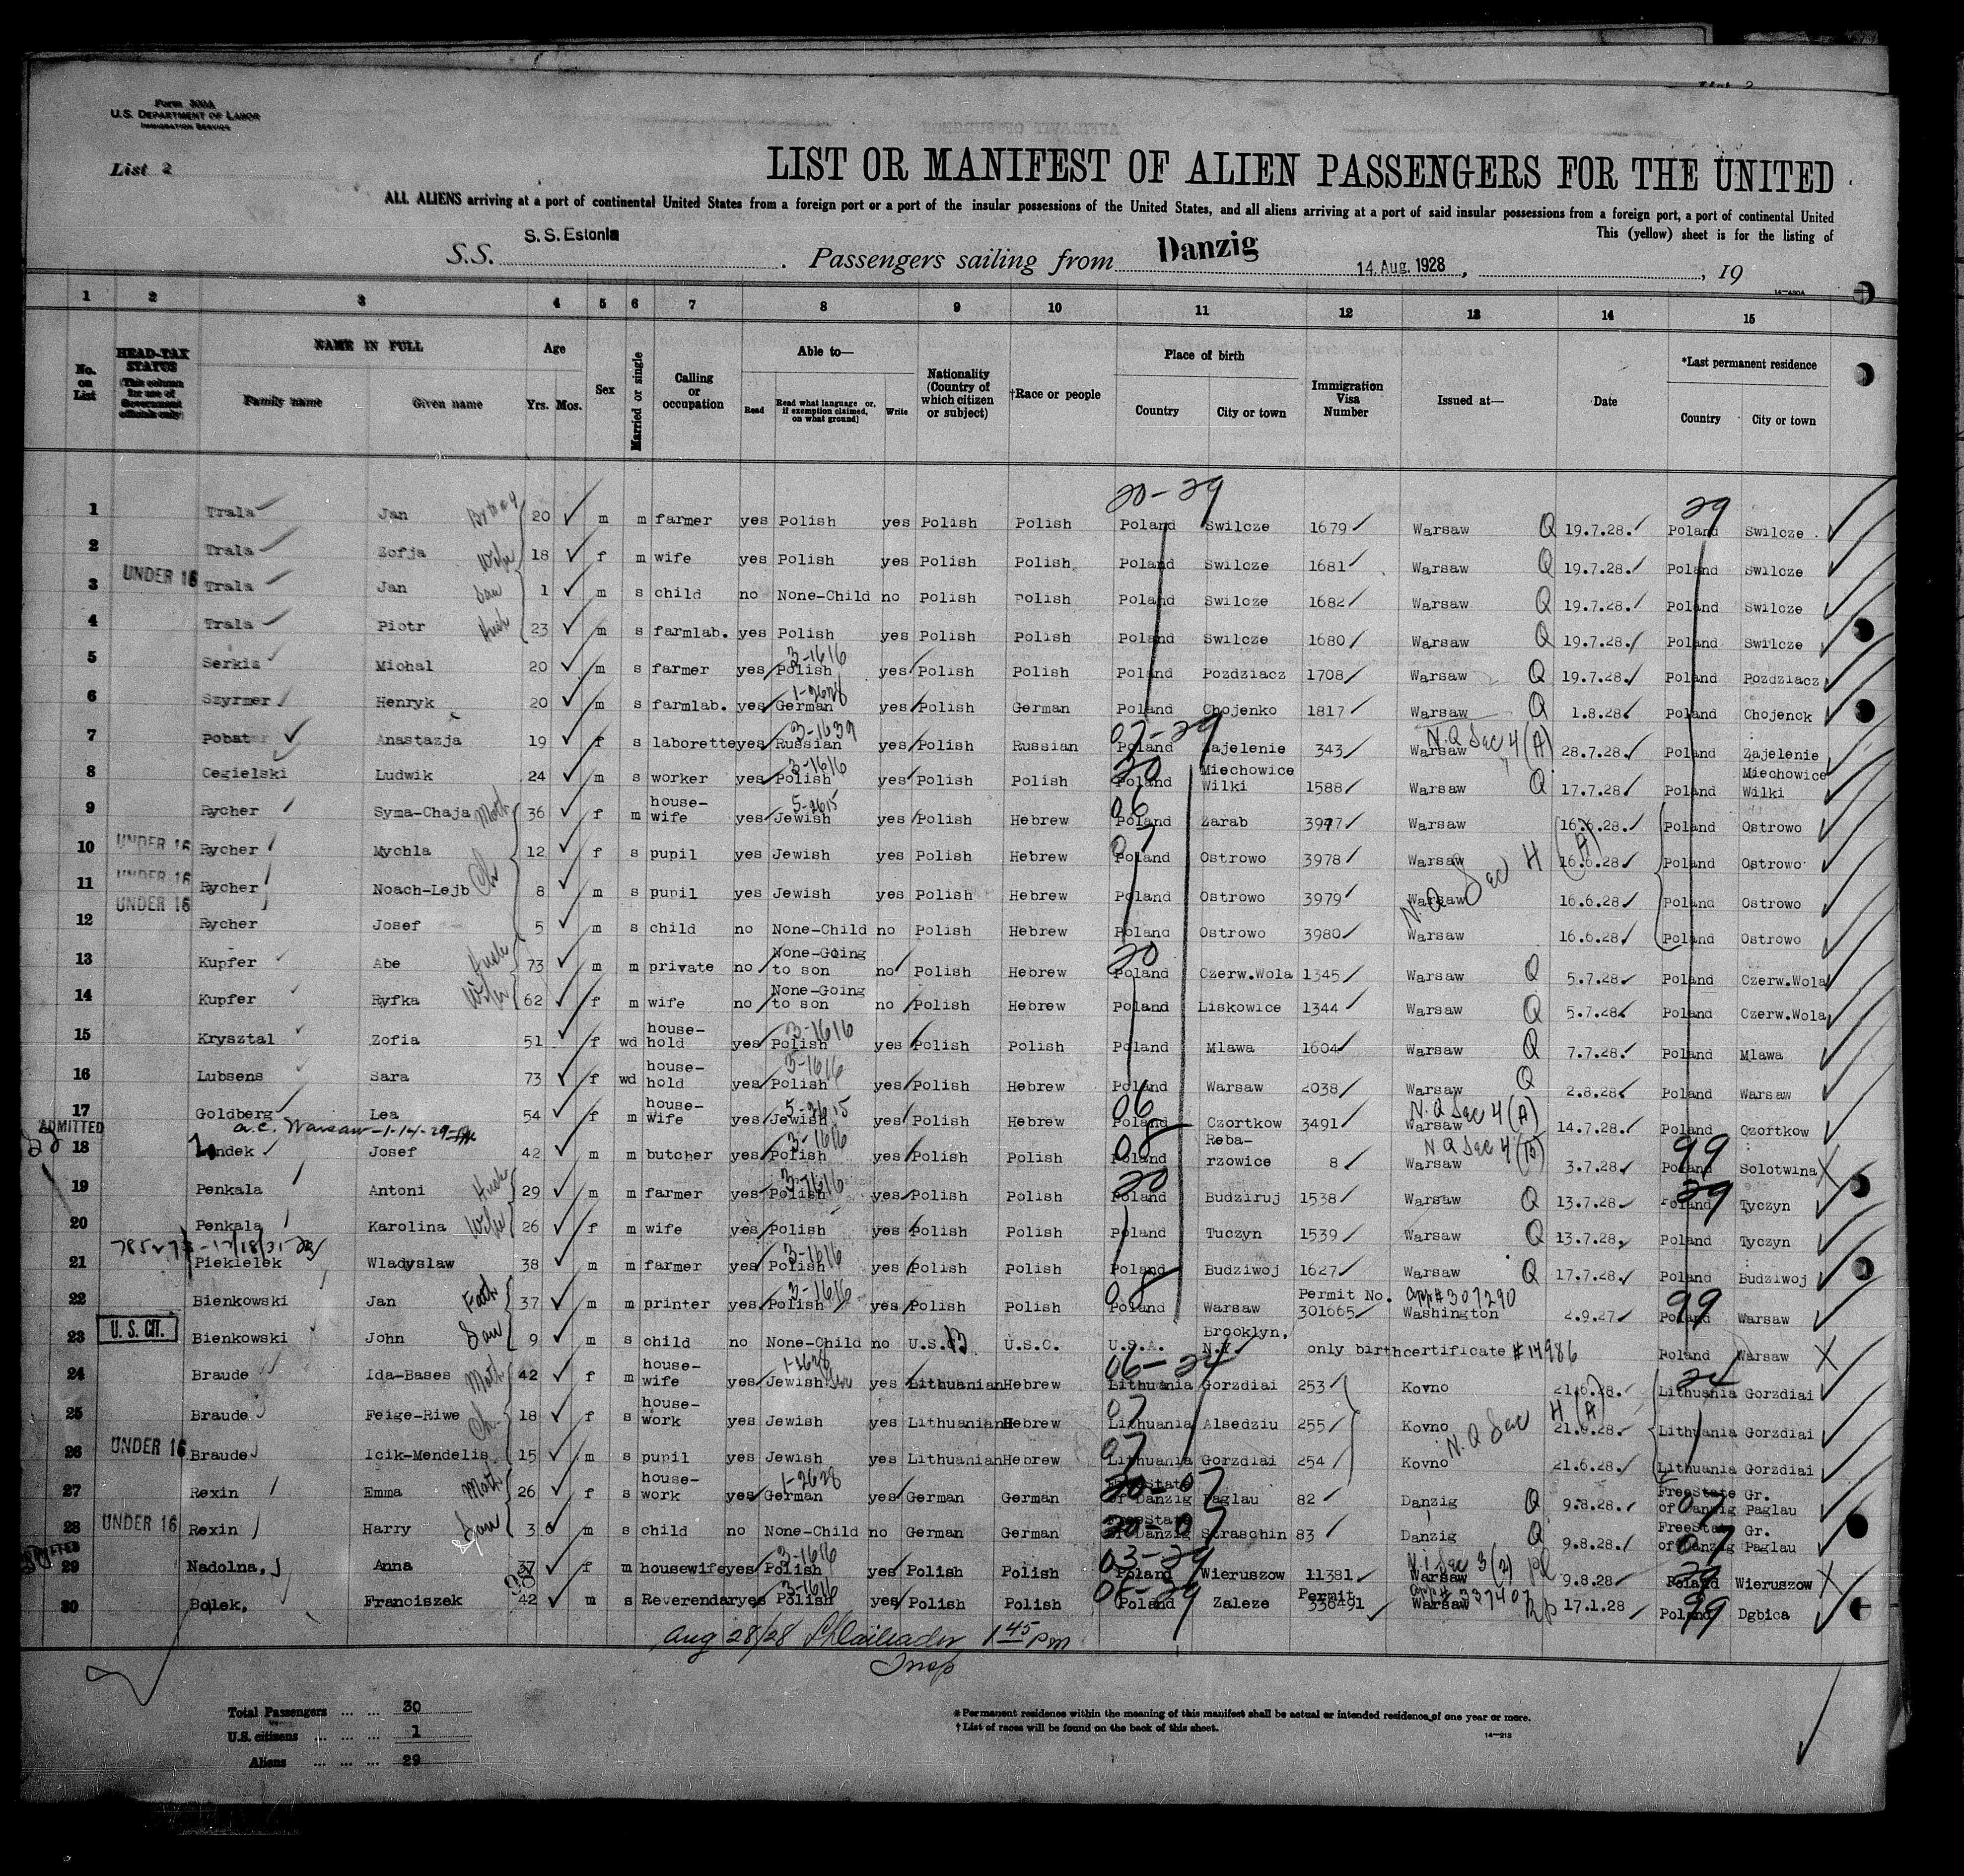 Form 500A
U.S. DEPARTMENT OF LABOR
IMMIGRATION SERVICE
List 2
LIST OR MANIFEST OF ALIEN PASSENGERS FOR THE UNITED
ALL ALIENS arriving at a port of continental United States from a foreign port or a port of the insular possessions of the United States, and all aliens arriving at a port of said insular possessions from a foreign port, a port of continental United
This (yellow) sheet is for the listing of
S.S. S. S. Estonia . Passengers sailing from Danzig 14. Aug. 1928 , , 19
1 2 3 4 5 6 7 8 9 10 11 12 13 14 15
No. on List HEAD-TAX STATUS (This column for use of Government officials only) NAME IN FULL Family name Given name Age Yrs. Mos. Sex Married or single Calling or occupation Able to— Read Read what language or, if exemption claimed, on what ground] Write Nationality (Country of which citizen or subject) †Race or people Place of birth Country City or town Immigration Visa Number Issued at— Date *Last permanent residence Country City or town
20-29 29
1 Trala Jan 20 m m farmer yes Polish yes Polish Polish Poland Swilcze 1679 Warsaw Q 19.7.28. Poland Swilcze
2 Trala Zofja Wife 18 f m wife yes Polish yes Polish Polish Poland Swilcze 1681 Warsaw Q 19.7.28. Poland Swilcze
3 UNDER 16 Trala Jan Son 1 m s child no None-Child no Polish Polish Poland Swilcze 1682 Warsaw Q 19.7.28. Poland Swilcze
4 Trala Piotr 23 m s farmlab. yes Polish yes Polish Polish Poland Swilcze 1680 Warsaw Q 19.7.28. Poland Swilcze
5 Serkis Michal 20 m s farmer yes Polish 3-1616 yes Polish Polish Poland Pozdziacz 1708 Warsaw Q 19.7.28. Poland Pozdziacz
6 Szyrmer Henryk 20 m s farmlab. yes German 1-2628 yes Polish German Poland Chojenko 1817 Warsaw Q 1.8.28. Poland Chojenck
7 Pobat Anastazja 19 f s laborette yes Russian 3-1639 yes Polish Russian 07-29 Poland Zajelenie 343 Warsaw N.Q Sec 4 (A) 28.7.28. Poland Zajelenie
8 Cegielski Ludwik 24 m s worker yes Polish 3-1616 yes Polish Polish 20 Poland Miechowice Wilki 1588 Warsaw Q 17.7.28. Poland Miechowice Wilki
9 Rycher Syma-Chaja Moth 36 f m house-wife yes Jewish 5-2615 yes Polish Hebrew 06 Poland Zarab 3977 Warsaw 16.6.28. Poland Ostrowo
10 UNDER 16 Rycher Mychla Ch 12 f s pupil yes Jewish yes Polish Hebrew 07 Poland Ostrowo 3978 Warsaw N.Q Sec 4 (A) 16.6.28 Poland Ostrowo
11 UNDER 16 Rycher Noach-Lejb 8 m s pupil yes Jewish yes Polish Hebrew Poland Ostrowo 3979 Warsaw 16.6.28 Poland Ostrowo
12 UNDER 16 Rycher Josef 5 m s child no None-Child no Polish Hebrew Poland Ostrowo 3980 Warsaw 16.6.28 Poland Ostrowo
13 Kupfer Abe Husb 73 m m private no None-Going to son no Polish Hebrew 20 Poland Czerw.Wola 1345 Warsaw Q 5.7.28. Poland Czerw.Wola
14 Kupfer Ryfka Wife 62 f m wife no None-Going to son no Polish Hebrew Poland Liskowice 1344 Warsaw Q 5.7.28. Poland Czerw.Wola
15 Krysztal Zofia 51 f wd house-hold yes Polish 3-1616 yes Polish Polish Poland Mlawa 1604 Warsaw Q 7.7.28. Poland Mlawa
16 Lubsens Sara 73 f wd house-hold yes Polish 3-1616 yes Polish Hebrew Poland Warsaw 2038 Warsaw Q 2.8.28. Poland Warsaw
17 Goldberg Lea 54 f m house-wife yes Jewish 5-2615 yes Polish Hebrew 06 Poland Czortkow 3491 Warsaw N.Q Sec 4 (A) 14.7.28. Poland Czortkow
ADMITTED a.c. Warsaw-1-14-29
18 Josef 42 m m butcher yes Polish 3-1616 yes Polish Polish 08 Poland Reba-rzowice 8 Warsaw N Q Sec 4 (B) 3.7.28 99 Poland Solotwina X
19 Penkala Antoni Husb 29 m m farmer yes Polish 3-1616 yes Polish Polish 20 Poland Budziruj 1538 Warsaw Q 13.7.28 29 Poland Tyczyn
20 Penkala Karolina Wife 26 f m wife yes Polish yes Polish Polish Poland Tuczyn 1539 Warsaw Q 13.7.28. Poland Tyczyn
21 Piekielek Wladyslaw 38 m m farmer yes Polish 3-1616 yes Polish Polish Poland Budziwoj 1627 Warsaw Q 17.7.28. Poland Budziwoj
22 Bienkowski Jan Fath 37 m m printer yes Polish 3-1616 yes Polish Polish 08 Poland Warsaw Permit No. 301665 App# 307290 Washington 2.9.27 99 Poland Warsaw
23 U. S. CIT. Bienkowski John Son 9 m s child no None-Child no U.S.C. U.S.C. U.S.A. Brooklyn, N.Y. only birthcertificate #14986 Poland Warsaw X
24 Braude Ida-Bases Moth 42 f m house-wife yes Jewish 1-2628 yes Lithuanian Hebrew 06-24 Lithuania Gorzdiai 253 Kovno 21.6.28. 24 Lithuania Gorzdiai
25 Braude Feige-Riwe Ch 18 f s house-work yes Jewish yes Lithuanian Hebrew 07 Lithuania Alsedziu 255 Kovno N.Q Sec 4 (A) 21.6.28. Lithuania Gorzdiai
26 UNDER 16 Braude Icik-Mendelis 15 m s pupil yes Jewish yes Lithuanian Hebrew 07 Lithuania Gorzdiai 254 Kovno 21.6.28 Lithuania Gorzdiai
27 Rexin Emma Moth 26 f s house-work yes German 1-2628 yes German German FreeState of Danzig Paglau 82 Danzig Q 9.8.28. FreeState of Danzig Gr. Paglau
28 UNDER 16 Rexin Harry Son 3 6 m s child no None-Child no German German FreeState of Danzig Straschin 83 Danzig Q 9.8.28. FreeState of Danzig Gr. Paglau
29 Nadolna, Anna 37 f m housewife yes Polish 3-1616 yes Polish Polish 03-29 Poland Wieruszow 11381 Warsaw Sec 3(2) 9.8.28 29 Poland Wieruszow X
30 Bolek, Franciszek 42 m s Reverendar yes Polish 3-1616 yes Polish Polish 08-29 Poland Zaleze Permit 336491 App# 337407 Warsaw 17.1.28 99 Poland Dgbica
Aug 28/28 1 45 pm
Insp
Total Passengers ... ... 30
U.S. citizens ... ... ... 1
Aliens ... ... ... 29
* Permanent residence within the meaning of this manifest shall be actual or intended residence of one year or more.
† List of races will be found on the back of this sheet.
14—213